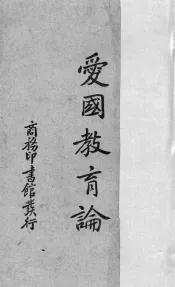 愛國教育論
商務印書館發行